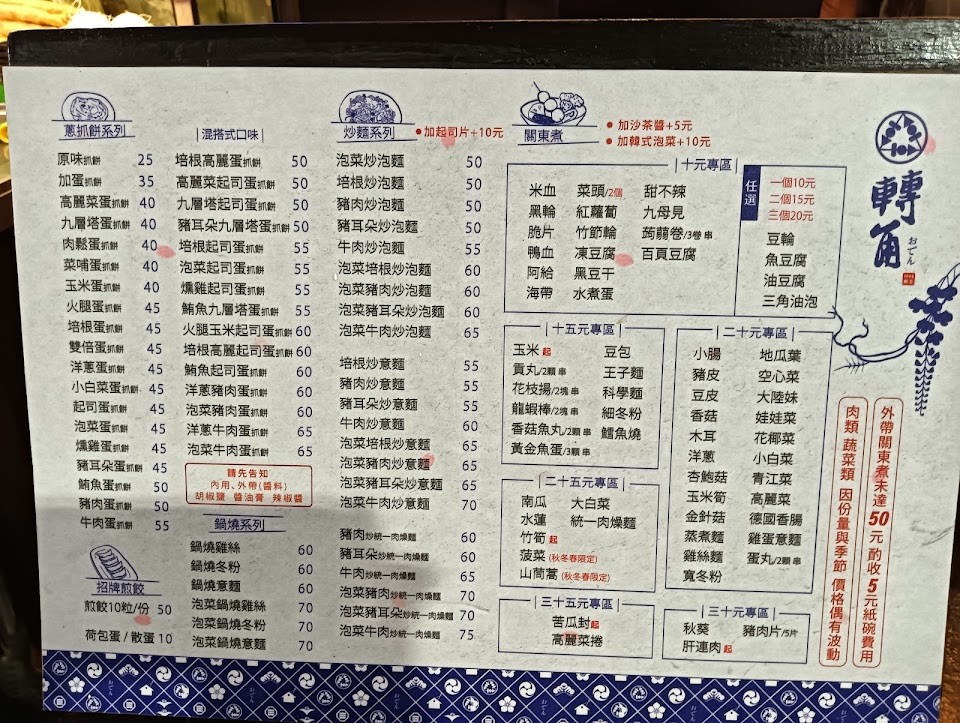 蔥抓餅系列
原味抓餅 25
加蛋抓餅 35
高麗菜蛋抓餅 40
九層塔蛋抓餅 40
肉鬆蛋抓餅 40
菜哺蛋抓餅 40
玉米蛋抓餅 40
火腿蛋抓餅 45
培根蛋抓餅 45
雙倍蛋抓餅 45
洋蔥蛋抓餅 45
小白菜蛋抓餅 45
起司蛋抓餅 45
泡菜蛋抓餅 45
燻雞蛋抓餅 45
豬耳朵蛋抓餅 45
鮪魚蛋抓餅 50
豬肉蛋抓餅 50
牛肉蛋抓餅 55
招牌煎餃
煎餃10粒/份 50
荷包蛋/散蛋 10
混搭式口味
培根高麗蛋抓餅 50
高麗菜起司蛋抓餅 50
九層塔起司蛋抓餅 50
豬耳朵九層塔蛋抓餅 50
培根起司蛋抓餅 55
泡菜起司蛋抓餅 55
燻雞起司蛋抓餅 55
鮪魚九層塔蛋抓餅 55
火腿玉米起司蛋抓餅 60
培根高麗起司蛋抓餅 60
鮪魚起司蛋抓餅 60
洋蔥豬肉蛋抓餅 60
泡菜豬肉蛋抓餅 60
洋蔥牛肉蛋抓餅 65
泡菜牛肉蛋抓餅 65
請先告知
內用、外帶(醬料)
胡椒鹽 醬油膏 辣椒醬
鍋燒系列
鍋燒雞絲 60
鍋燒冬粉 60
鍋燒意麵 60
泡菜鍋燒雞絲 70
泡菜鍋燒冬粉 70
泡菜鍋燒意麵 70
炒麵系列
●加起司片+10元
泡菜炒泡麵 50
培根炒泡麵 50
豬肉炒泡麵 50
豬耳朵炒泡麵 50
牛肉炒泡麵 55
泡菜培根炒泡麵 60
泡菜豬肉炒泡麵 60
泡菜豬耳朵炒泡麵 60
泡菜牛肉炒泡麵 65
培根炒意麵 55
豬肉炒意麵 55
豬耳朵炒意麵 55
牛肉炒意麵 60
泡菜培根炒意麵 65
泡菜豬肉炒意麵 65
泡菜豬耳朵炒意麵 65
泡菜牛肉炒意麵 70
豬肉炒統一肉燥麵 60
豬耳朵炒統一肉燥麵 60
牛肉炒統一肉燥麵 65
泡菜豬肉炒統一肉燥麵 70
泡菜豬耳朵炒統一肉燥麵 70
泡菜牛肉炒統一肉燥麵 75
關東煮
●加沙茶醬+5元
●加韓式泡菜+10元
十元專區
米血 菜頭/2個 甜不辣
黑輪 紅蘿蔔 九母見
脆片 竹節輪 蒟蒻卷/3卷 串
鴨血 凍豆腐 百頁豆腐
阿給 黑豆干
海帶 水煮蛋
任選
一個10元
二個15元
三個20元
豆輪
魚豆腐
油豆腐
三角油泡
十五元專區
玉米起 豆包
貢丸/2顆 串 王子麵
花枝揚/2塊 串 科學麵
龍蝦棒/2塊 串 細冬粉
香菇魚丸/2顆 串 鱈魚燒
黃金魚蛋/3顆 串
二十元專區
小腸 地瓜葉
豬皮 空心菜
豆皮 大陸妹
香菇 娃娃菜
木耳 花椰菜
洋蔥 小白菜
杏鮑菇 青江菜
玉米筍 高麗菜
金針菇 德國香腸
蒸煮麵 雞蛋意麵
雞絲麵 蛋丸/2顆 串
寬冬粉
二十五元專區
南瓜 大白菜
水蓮 統一肉燥麵
竹筍 起
菠菜 (秋冬春限定)
山茼蒿 (秋冬春限定)
三十五元專區
苦瓜封起
高麗菜捲
三十元專區
秋葵 豬肉片/5片
肝連肉起
轉角
おでん
外帶關東煮未達50元 酌收5元紙碗費用
肉類 蔬菜類 因份量與季節 價格偶有波動